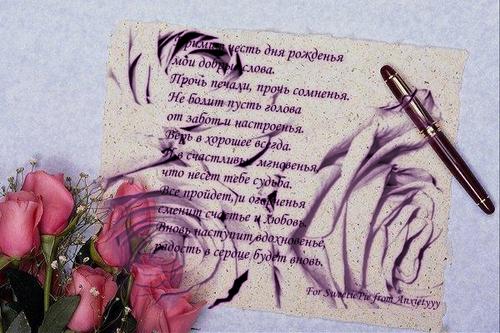 Прими в честь дня рожденья
мои добрые слова.
Прочь печали, прочь сомненья.
Не болит пусть голова
от забот и настроенья.
Верь в хорошее всегда.
И в счастливы мгновенья,
что несет тебе судьба.
Все пройдет, и огорченья
сменит счастье и любовь.
Вновь наступит вдохновенье,
радость в сердце будет вновь.
For SweetiePie from Anxietyyy